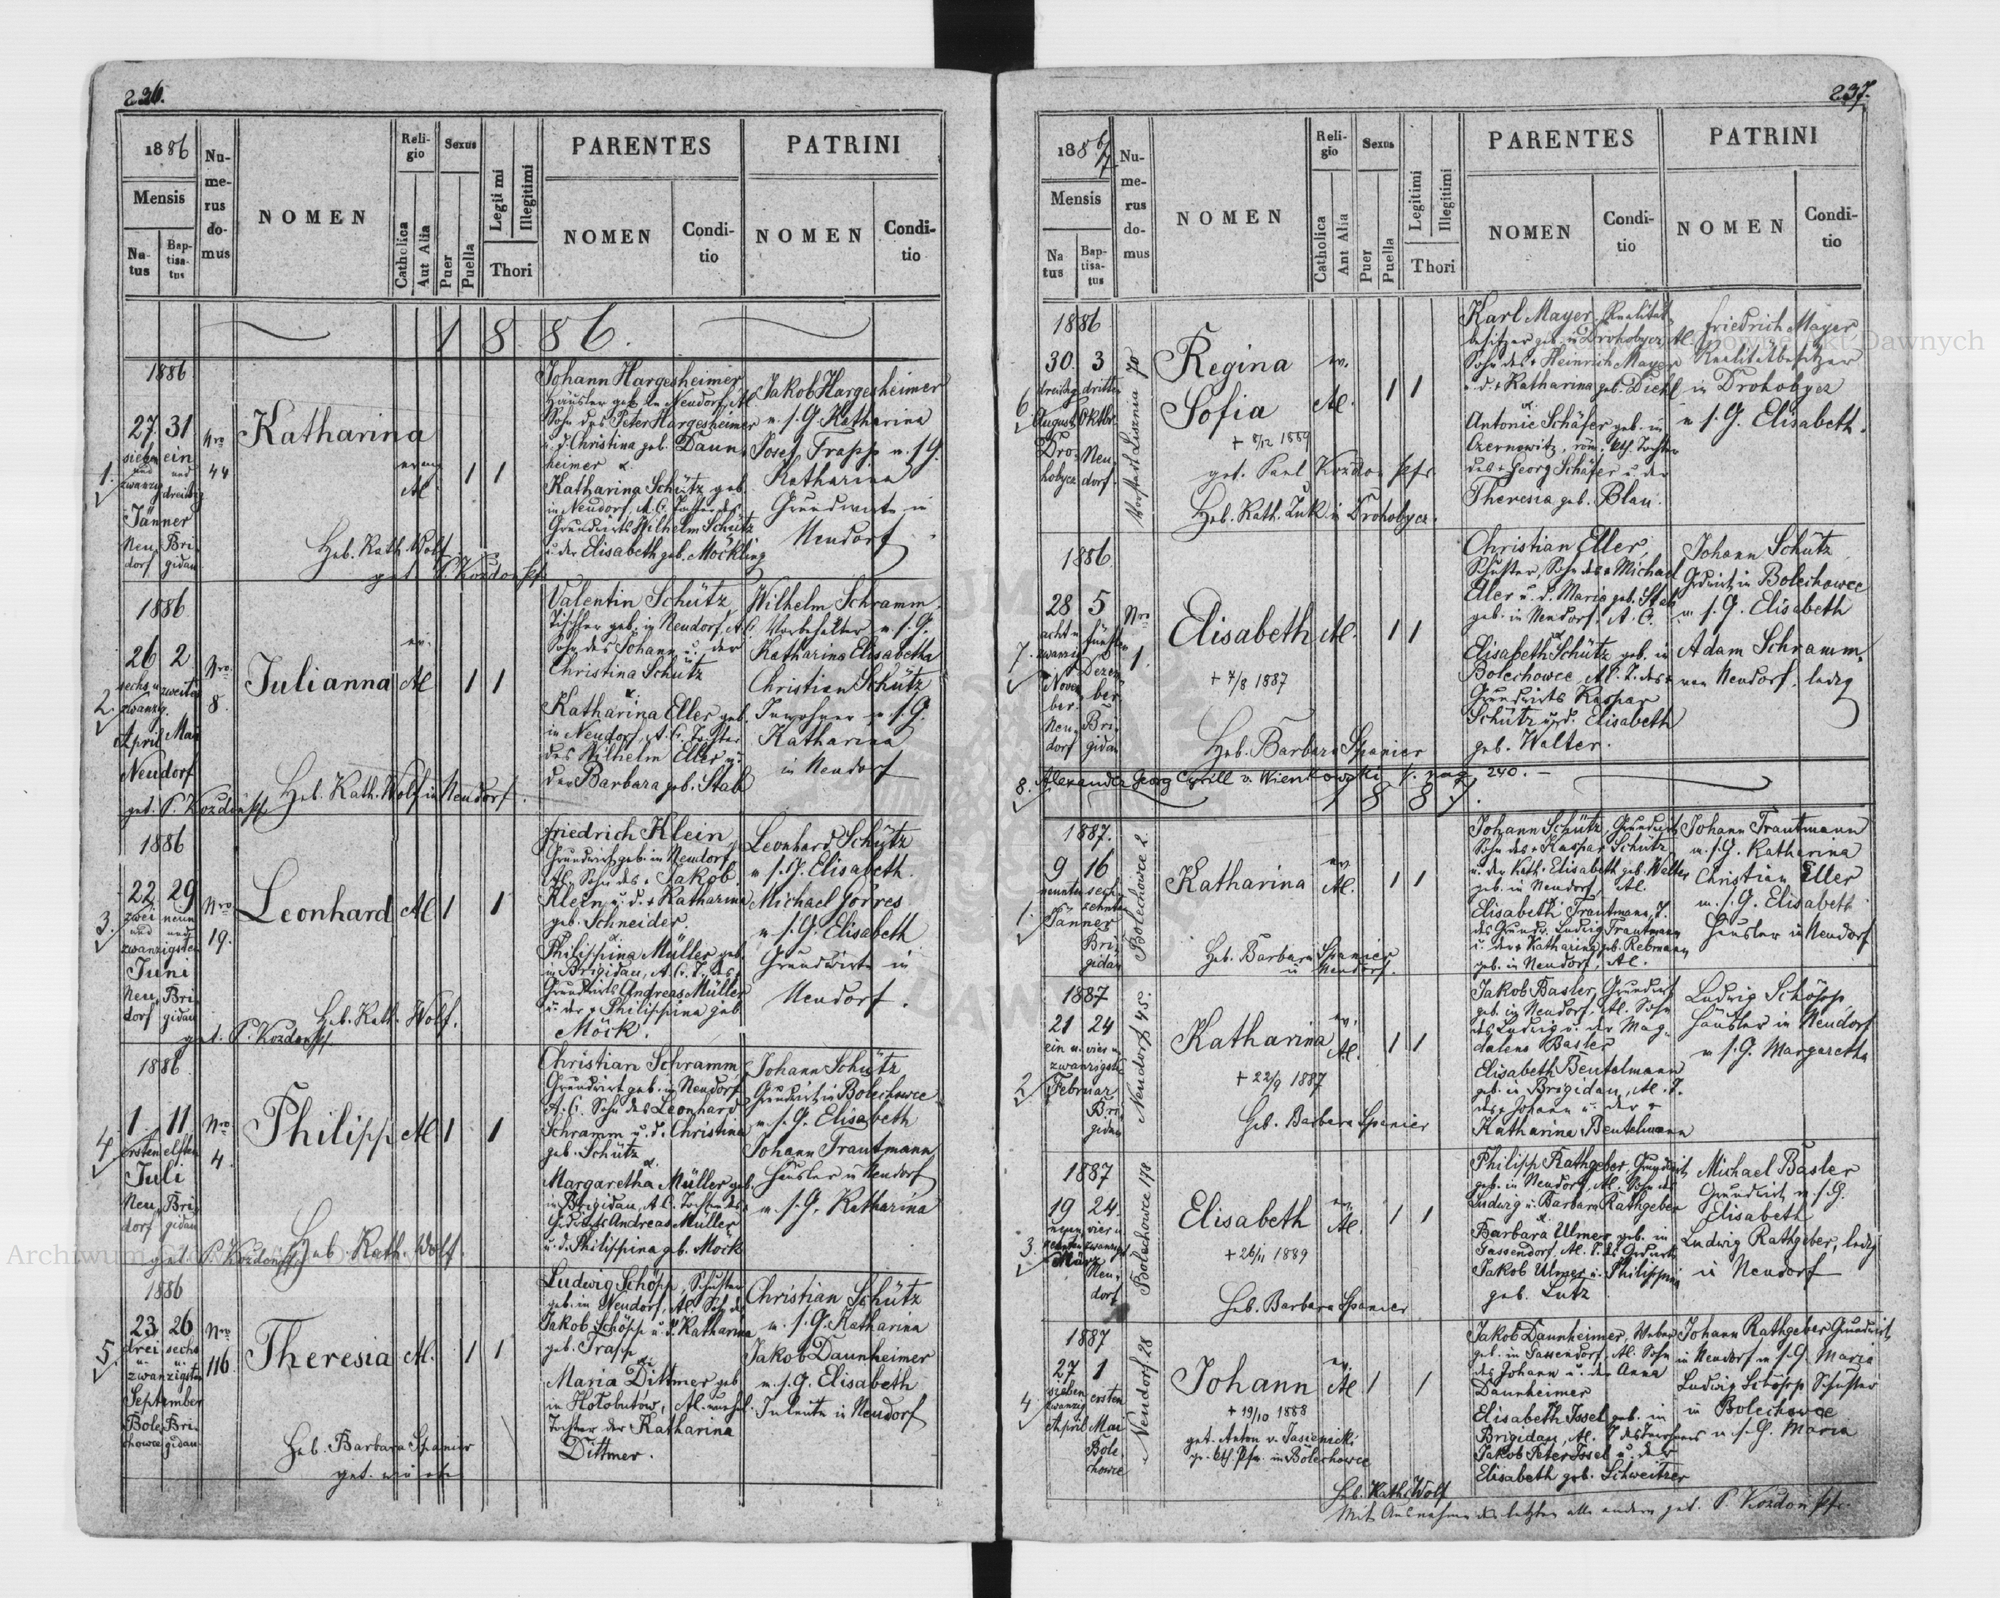 236.
1886
Mensis
Na-
tus
Bap-
tisa-
tus
Nu-
me-
rus
do-
mus
NOMEN
Reli-
gio
Catholica
Aut Alia
Sexus
Puer
Puella
Legitimi
Illegitimi
Thori
PARENTES
NOMEN
Condi-
tio
PATRINI
NOMEN
Condi-
tio
1886.
1886
27. 31
sieben ein
und und
zwanzig dreißig
Jänner
Neu- Bri-
dorf gidau
1.
Nro
44
Katharina
evang.
Al.
1 1
Heb. Kath. Wolf
get. P. Kozdoń Pfr
Johann Hargesheimer
Häusler geb. in Neudorf, Al
Sohn des Peter Hargesheimer
u. d. Christina geb. Daun-
heimer &
Katharina Schütz geb.
in Neudorf, A. C. Tochter des
Grundwirts Wilhelm Schütz
u. der Elisabeth geb. Möckling
Jakob Hargesheimer
u. s. G. Katharina
Josef Trapp u. s. G.
Katharina
Grundwirte in
Neudorf
1886
26 2
sechs u. zweiten
zwanzig.
April Mai
Neudorf
2.
Nro
8.
Julianna
ev.
Al
1 1
Heb. Kath. Wolf in Neudorf.
get. P. Kozdoń Pfr
Valentin Schütz
Tischler geb. in Neudorf, A. C.
Sohn des Johann u. der
Christina Schütz
&
Katharina Eller geb.
in Neudorf, A. C. Tochter
des Wilhelm Eller u.
der Barbara geb. Stabl
Wilhelm Schramm,
Vorbehalter u. s. G.
Katharina Elisabetha
Christian Schütz
Inwohner u. s. G.
Katharina
in Neudorf
1886
22 29
zwei neun
und und
zwanzigsten
Juni
Neu- Bri-
dorf gidau
3.
Nro
19.
Leonhard
Al
1 1
Heb. Kath. Wolf.
get. P. Kozdoń Pfr
Friedrich Klein
Grundwirt geb. in Neudorf
Al. Sohn des + Jakob
Klein u. d. + Katharina
geb. Schneider.
&
Philippina Müller geb.
in Brigidau, A. C. T. des
Grundwirts Andreas Müller
u. der + Philippina geb
Möck.
Leonhard Schütz
u. s. G. Elisabeth.
Michael Görres
u. s. G. Elisabeth
Grundwirte in
Neudorf.
1886
1. 11
ersten elften
Juli
Neu- Bri-
dorf gidau
4
Nro
4.
Philipp
Al
1 1
Heb. Kath. Wolf.
get. P. Kozdoń Pfr
Christian Schramm,
Grundwirt geb. in Neudorf
A. C. Sohn des Leonhard
Schramm u. d. Christina
geb. Schütz &
Margaretha Müller geb.
in Brigidau, A. C. Tochter des
Grdwirts Andreas Müller
u. d. Philippina gb. Möck
Johann Schütz
Grundwirt in Bolechowce
u. s. G. Elisabeth
Johann Trautmann
Häusler in Neudorf
u. s. G. Katharina
1886
23 26
drei sechs
u. u.
zwanzigsten
September
Bole- Bri-
chowce gidau
5.
Nro
116
Theresia
Al.
1 1
Heb. Barbara Spanier
get. wie oben
Ludwig Schöpp, Schuster
geb. in Neudorf, Al. Sohn des
Jakob Schöpp u. d. Katharina
geb. Trapp &
Maria Dittmer geb
in Hołobutów, Al. unehel.
Tochter der Katharina
Dittmer.
Christian Schütz
u. s. G. Katharina
Jakob Daunheimer
u. s. G. Elisabeth
Inleute in Neudorf
237.
1886/7
Mensis
Na
tus
Bap-
tisa-
tus
Nu-
me-
rus
do-
mus
NOMEN
Reli-
gio
Catholica
Aut Alia
Sexus
Puer
Puella
Legitimi
Illegitimi
Thori
PARENTES
NOMEN
Condi-
tio
PATRINI
NOMEN
Condi-
tio
1886
30. 3
dreißig dritten
August Oktbr.
Dro- Neu-
hobycz dorf.
6
Vorstadt Lisznia 70
Regina
Sofia
ev.
Al.
1 1
+ 8/12 1889
get. Paul Kozdoń Pfr.
Heb. Kath. Zuk in Drohobycz.
Karl Mayer, Realität-
besitzer geb. in Drohobycz Al.
Sohn des + Heinrich Mayer
u. d. + Katharina geb. Diehl
&
Antonie Schäfer geb. in
Czernowitz, röm. kth. Tochter
des + Georg Schäfer u. der
Theresia geb. Blau.
Friedrich Mayer
Realitätbesitzer
in Drohobycz
u. s. G. Elisabeth.
1886
28 5
acht u. fünften
zwanzig
Novem- Dezem-
ber. ber.
Neu- Bri-
dorf gidau
7.
Nro
1.
Elisabeth
Al.
1 1
+ 7/8 1887
Heb. Barbara Spanier
Christian Eller,
Schuster, Sohn des + Michael
Eller u. d. Maria geb. Stabl
geb. in Neudorf. A. C.
&
Elisabeth Schütz geb. in
Bolechowce, Al. T. des +
Grundwirts Kaspar
Schütz u. d. Elisabeth
geb. Walter.
Johann Schütz
Grdwirt in Bolechowce
u. s. G. Elisabeth
Adam Schramm,
von Neudorf, ledig
8. Alexander Georg Cyrill v. Wienkowski s. pag. 240.
1887.
1887.
9 16
neunten sech-
zehnten
Jänner
Bri-
gidau
1.
Bolechowce 2.
Katharina
ev.
Al.
1 1
Heb. Barbara Spanier
in Neudorf.
Johann Schütz, Grundwirt
Sohn des + Kaspar Schütz
u. der Kath. Elisabeth geb. Walter
geb. in Neudorf, Al.
Elisabeth Trautmann, T.
des Grundw. Ludwig Trautmann
u. der + Katharina geb. Rebmann
geb. in Neudorf, Al.
Johann Trautmann
u. s. G. Katharina
Christian Eller
u. s. G. Elisabeth
Häusler in Neudorf
1887
21 24
ein u. vier u.
zwanzigsten
Februar
Bri-
gidau
2.
Neudorf 45.
Katharina
ev.
Al.
1 1
+ 22/9 1887
Heb. Barbara Spanier
Jakob Basler, Grundwirt
geb. in Neudorf, Al. Sohn
des Ludwig u. der Mag-
dalena Basler
Elisabeth Beutelmann
geb. in Brigidau, Al. T.
des + Johann u. der +
Katharina Beutelmann
Ludwig Schöpp,
Häusler in Neudorf
u. s. G. Margaretha
1887
19 24.
neun- vier u.
zehnten zwanzigst.
März
Neu-
dorf
3.
Bolechowce 178
Elisabeth
ev.
Al.
1 1
+ 26/11 1889
Heb. Barbara Spanier
Philipp Rathgeber, Grundwirt
geb. in Neudorf, Al. Sohn des
Ludwig u. Barbara Rathgeber
&
Barbara Ulmer geb. in
Gassendorf, Al. T. des Grdwirts
Jakob Ulmer u. Philippina
geb. Lutz
Michael Basler
Grundwirt u. s. G.
Elisabeth
Ludwig Rathgeber, ledig
in Neudorf
1887
27 1
sieben ersten
zwanzig
April Mai
Bole-
chowce
4
Neudorf 28
Johann
ev.
Al
1 1
+ 19/10 1888
get. Anton v. Jasienicki
gr. kth. Pfr. in Bolechowce
Heb. Kath. Wolf
Jakob Daunheimer, Weber
geb. in Gassendorf, Al. Sohn
des Johann u. der Anna
Daunheimer
Elisabeth Issel geb. in
Brigidau, Al. T. des Inwohners
Jakob Peter Issel u. der
Elisabeth geb. Schweitzer
Johann Rathgeber Grundwirt
in Neudorf u. s. G. Maria
Ludwig Schöpp Schuster
in Bolechowce
u. s. G. Maria
Mit Ausnahme des letzten alle andern get. P. Kozdoń Pfr.